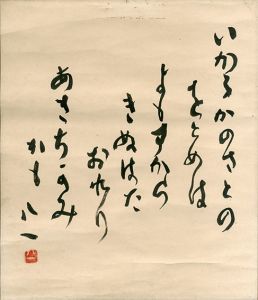 いかるかのさとの
をとめは
よもすから
きぬはた
おれり
あきちかみ
かも 八一